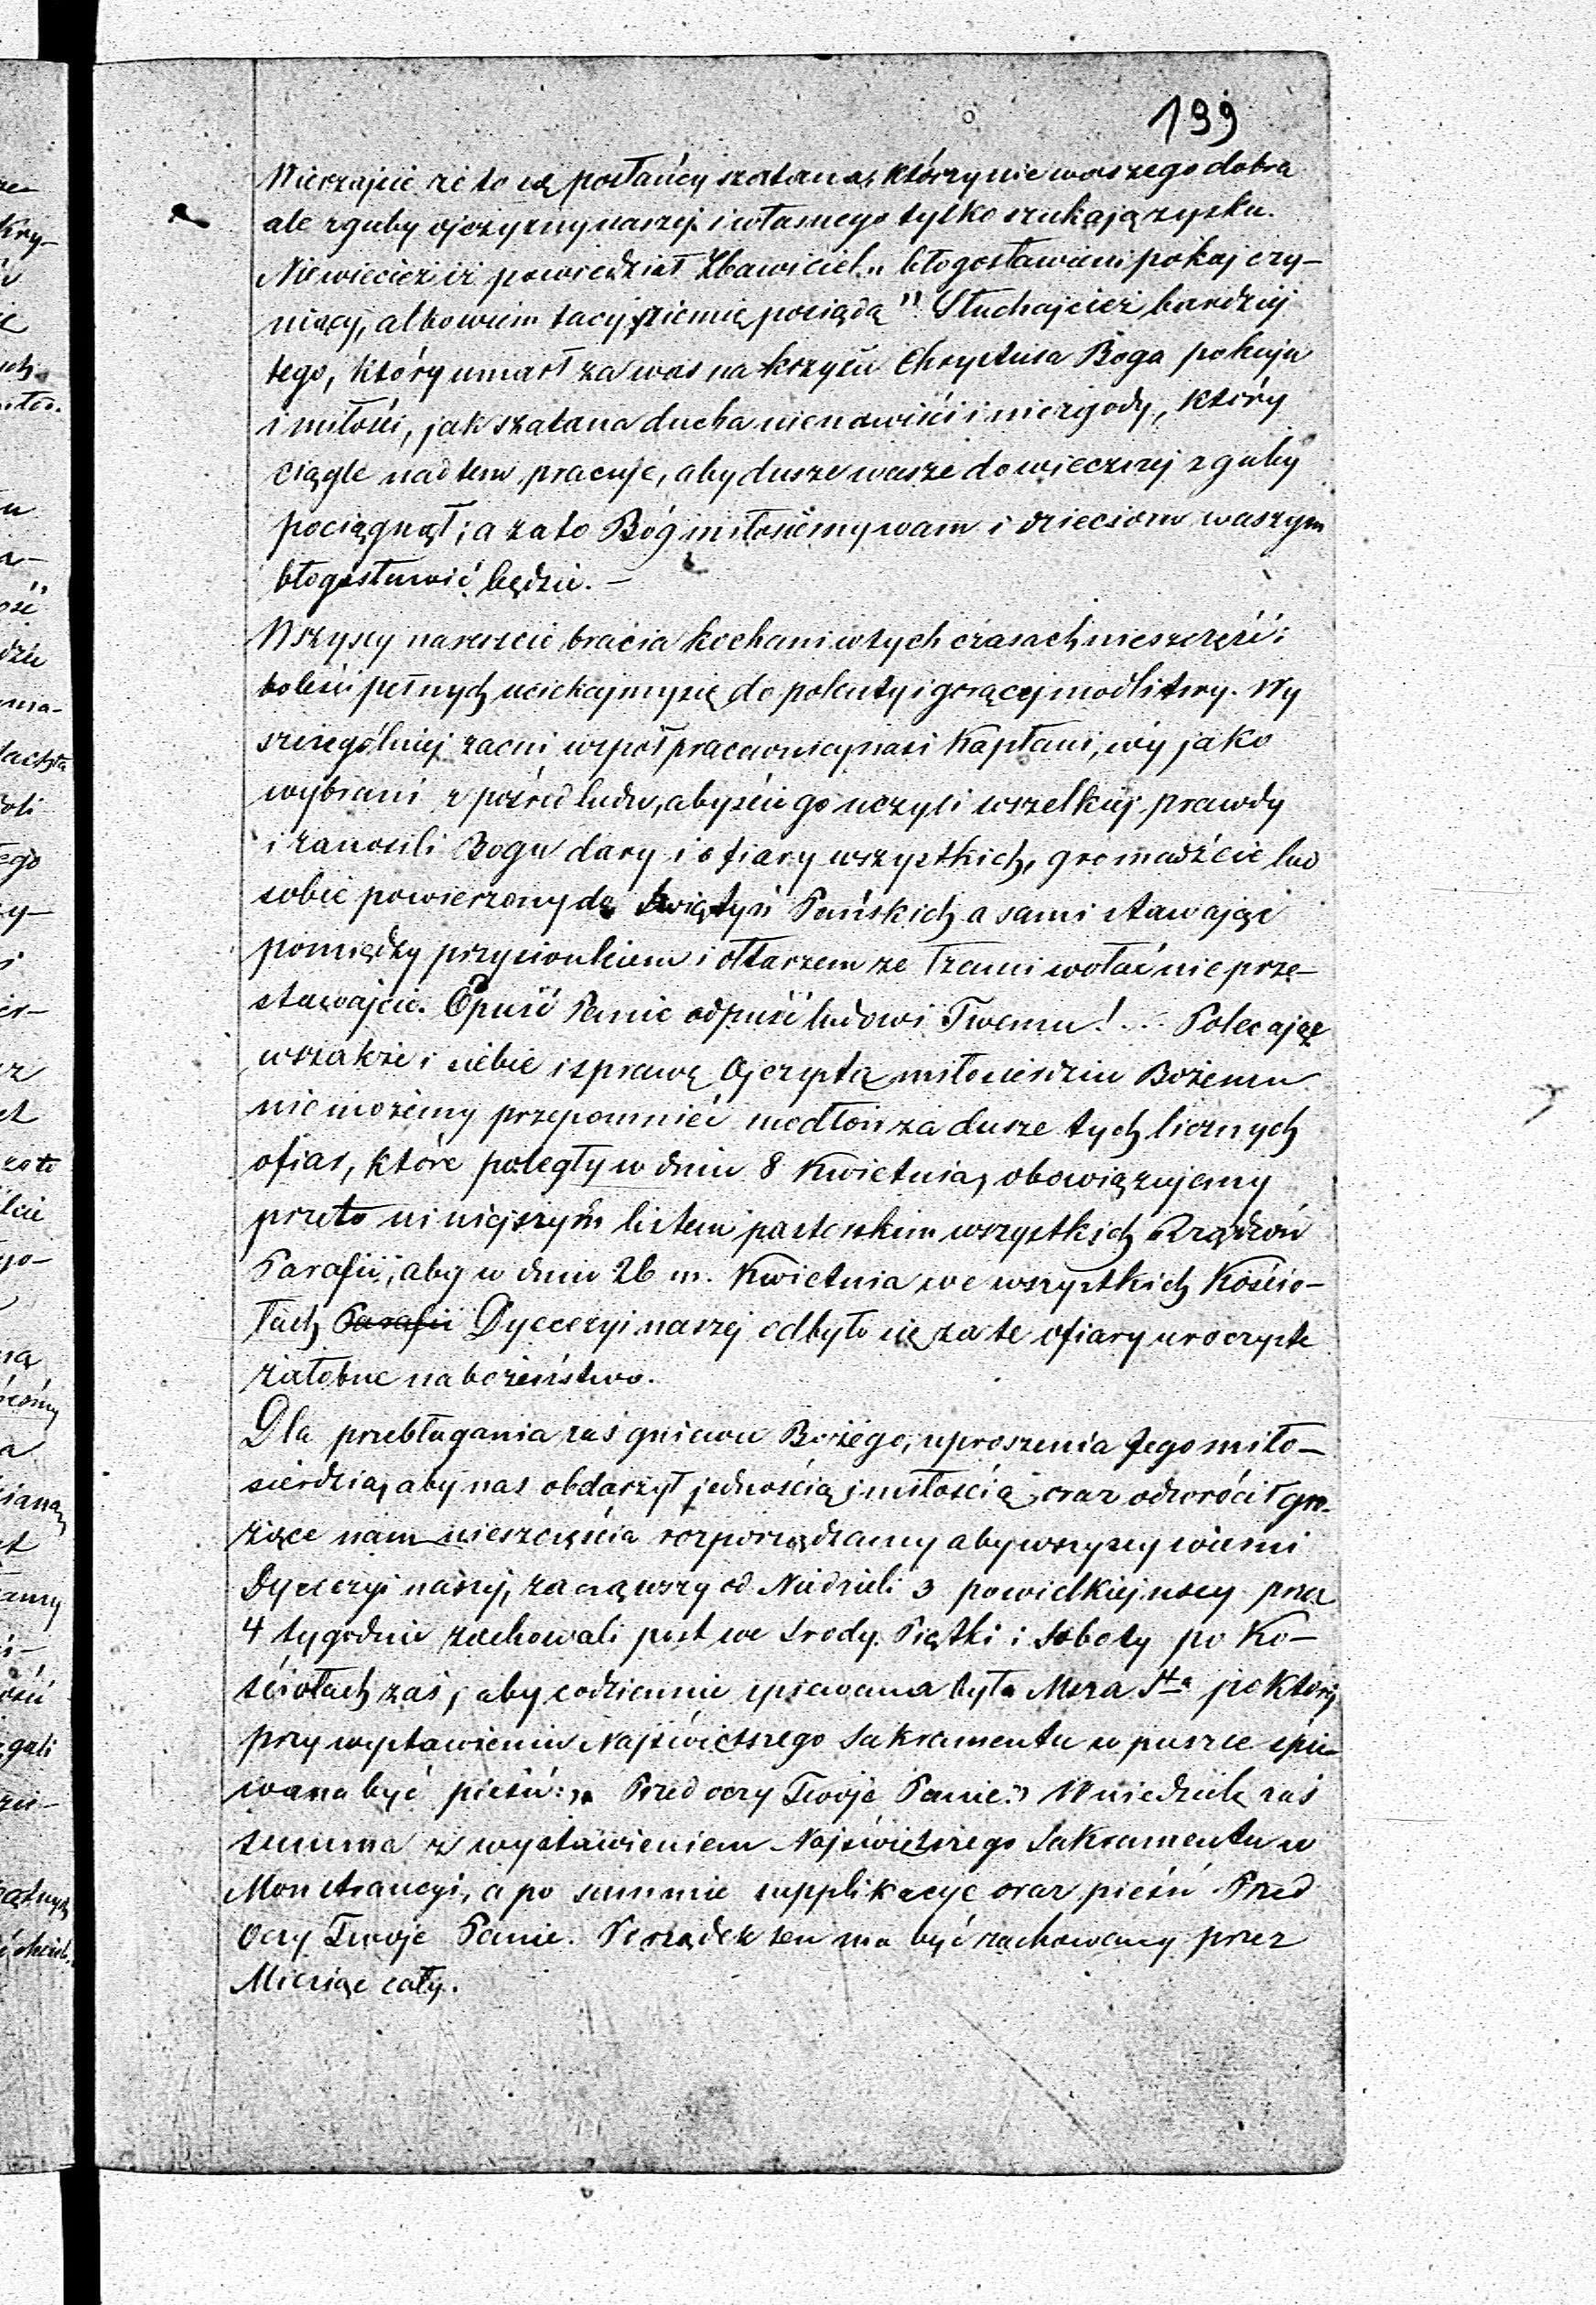 199
Wierzajcie że to są posłańcy szatana, którzy nie waszego dobra
ale zguby ojczyzny naszej i własnego tylko szukają zysku.
Nie wiecież iż powiedział Zbawiciel „błogosławieni pokój czy-
niący, albowiem tacy ziemię posiędą" Słuchajcież bardziej
tego, który umarł za was na krzyżu Chrystusa Boga pokoju
i miłości, jak szatana ducha nienawiści i niezgody, który
ciągle nad tem pracuje, aby dusze wasze do wiecznej zguby
pociągnął; a za to Bóg miłosierny wam i dzieciom waszym
błogosławić będzie. –
Wszyscy nareszcie bracia kochani w tych czasach nieszczęść i
boleści pełnych uciekajmy się do pokuty i gorącej modlitwy. Wy
szczególniej zacni współpracownicy nasi Kapłani, wy jako
wybrani z pośród ludu, abyście go uczyli wszelkiej prawdy
i zanosili Bogu dary i ofiary wszystkich, gromadźcie lud
sobie powierzony do Świątyń Pańskich a sami stawając
pomiędzy przysionkiem i ołtarzem ze łzami wołać nie prze-
stawajcie. Opuść Panie odpuść ludowi Twemu!... Polecając
wszakże i siebie i sprawę Ojczystą miłosierdziu Bożemu
nie możemy przepomnieć modłów za dusze tych licznych
ofiar, które poległy w dniu 8 Kwietnia, obowiązujemy
przeto niniejszym listem pasterskim wszystkich Rządców
Parafii, aby w dniu 26 m. Kwietnia we wszystkich Kościo-
łach Parafii Dyecezyi naszej odbyło się za te ofiary uroczyste
żałobne nabożeństwo.
Dla przebłagania zaś gniewu Bożego, uproszenia Jego miło-
sierdzia, aby nas obdarzył jednością i miłością, oraz odwrócił gro-
żące nam nieszczęścia rozporządzamy aby wszyscy wierni
Dyecezyi naszej, zacząwszy od Niedzieli 3 po wielkiej nocy przez
4 tygodnie zachowali post we Środy. Piątki i Soboty po Ko-
ściołach zaś, aby codziennie śpiewana była Msza Sta po której
przy wystawieniu Najświętszego Sakramentu w puszce śpie-
wana być pieśń: „Przed oczy Twoje Panie." W niedzielę zaś
summa z wystawieniem Najświętszego Sakramentu w
Monstrancyi, a po summie supplikacye oraz pieśń Przed
Oczy Twoje Panie. Porządek ten ma być zachowany przez
Miesiąc cały.